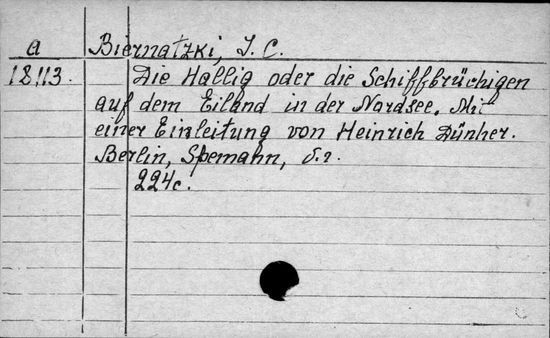 a Biernatzki, J. C.
18113. Die Hallig oder die Schiffbrüchigen
auf dem Eiland in der Nordsee. Mit
einer Einleitung von Heinrich Dünher.
Berlin, Spemann, б.г.
224с.